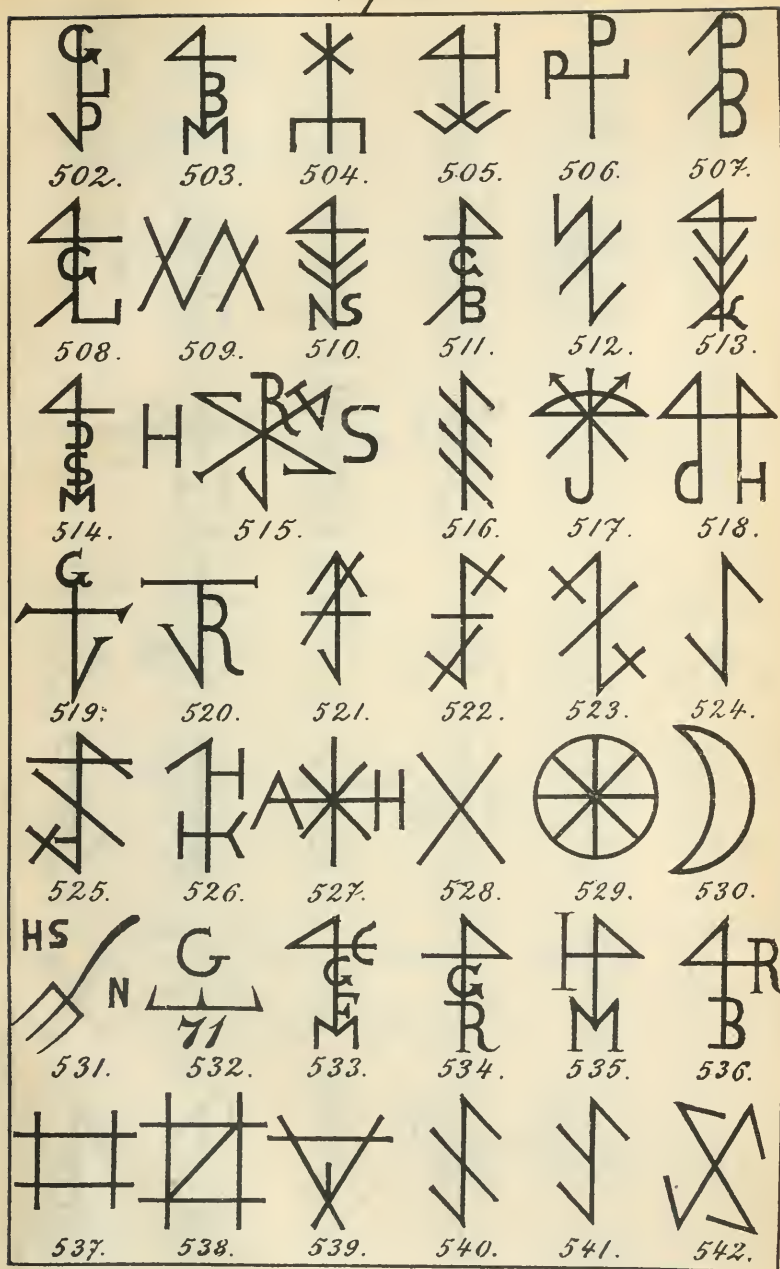 502. 503. 504. 505. 506. 507.
508. 509. 510. 511. 512. 513.
514. 515. 516. 517. 518.
519. 520. 521. 522. 523. 524.
525. 526. 527. 528. 529. 530.
HS
N
G
71
531. 532. 533. 534. 535. 536.
537. 538. 539. 540. 541. 542.